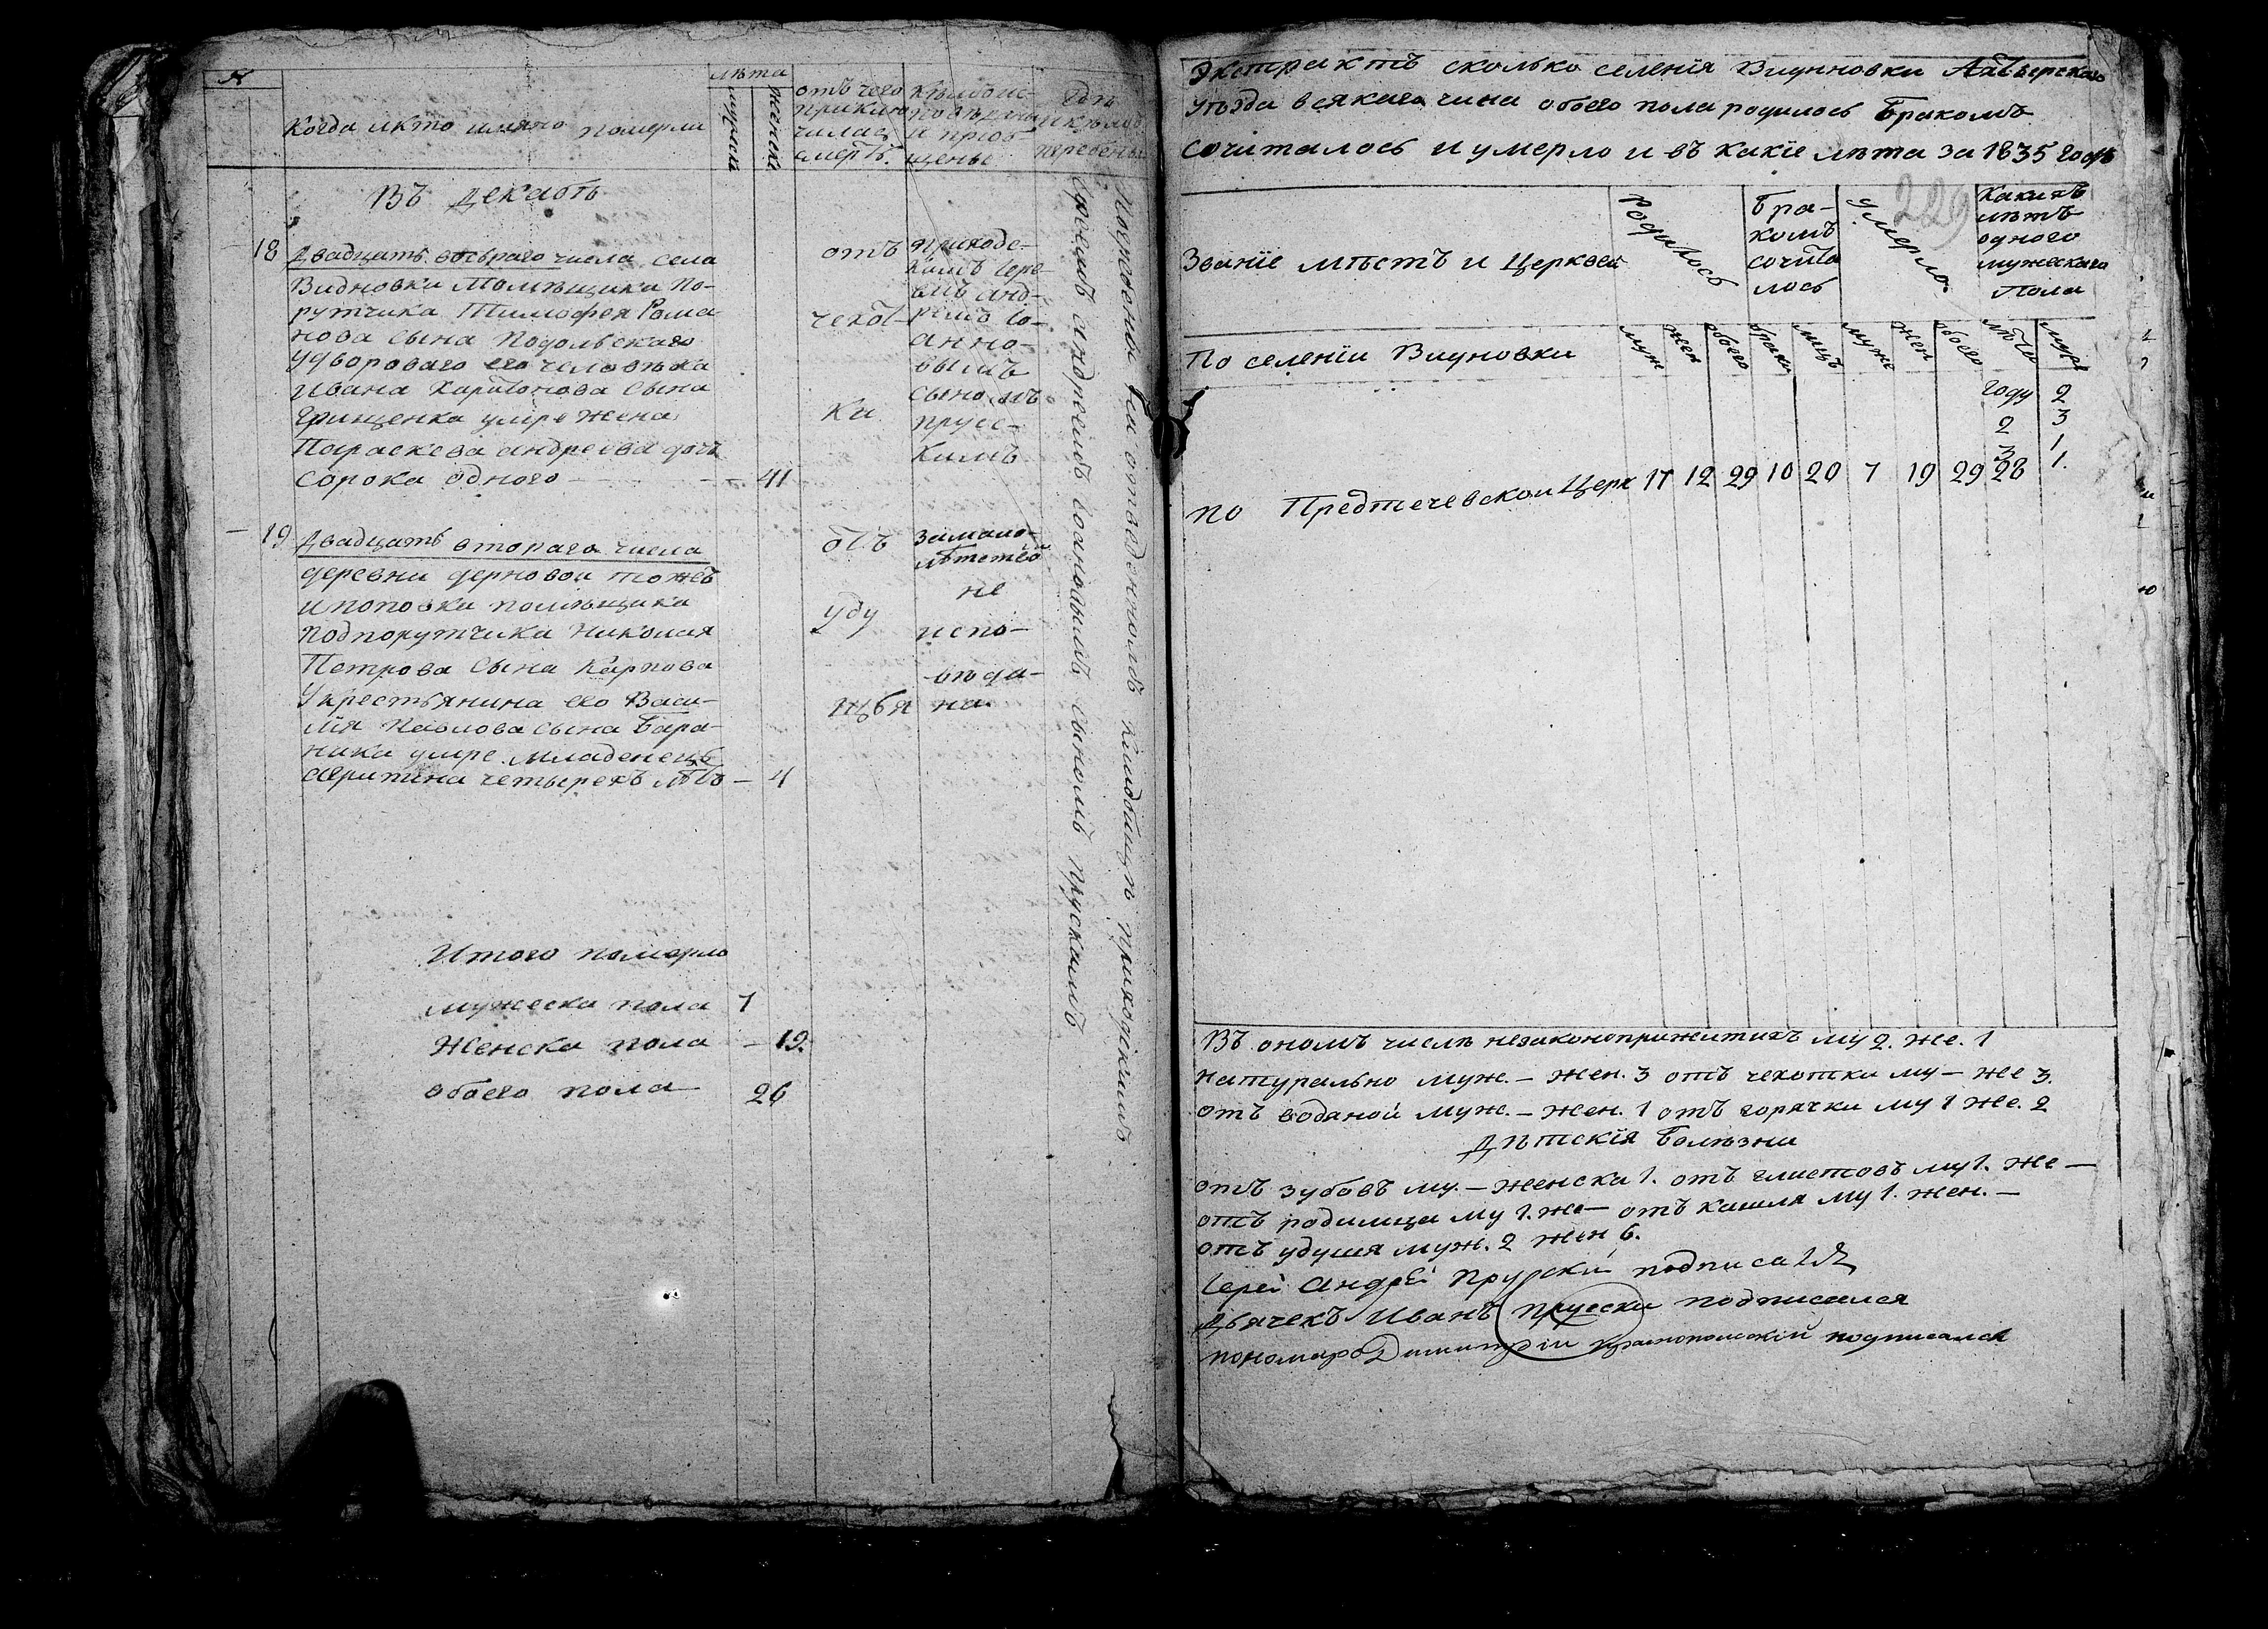 №
Когда и кто имяно померли
лѣта
мужска
женска
отъ чего
приклю
чилась
смерть.
кѣмъ ис-
повѣданы
и приоб
щены
Где
и кѣмъ
погребены
Въ Декабрѣ
18 Двадцать осьмаго числа села
Видновки Помѣщика По-
рутчика Тимофея Рома
нова сына Подольскаго
у двороваго его человѣка
Ивана Харитонова сына
Грищенка умре жена
Параскева Андреева дочь
сорока одного — — 41
отъ
чехот-
ки
Приходс-
кимъ Іере
емъ Анд-
реемъ Іо-
анно-
вымъ
сыномъ
Прусс-
кимъ
19 Двадцать втораго числа
деревни Дерновой тожъ
и Поповки помѣщика
Подпорутчика Николая
Петрова сына Карпова
У крестьянина его Васи-
лія Павлова сына Бара-
ника умре младенецъ
четырехъ лѣтъ — 4
отъ
уду
за мало-
лѣтствомъ
не
испо-
вѣда-
на.
Погребены на отведенномъ кладбищѣ приходскимъ
Іереемъ Андреемъ Іоановымъ сыномъ Прускимъ
Итого померло
мужеска пола 7
Женска пола — 19.
обоего пола 26
Экстрактъ сколько селенія Видновки
уѣзда всякаго чина обоего пола родилось бракомъ
сочиталось и умерло и въ какіе лѣта за 1835 годъ
229
Званіе мѣстъ и Церквей
Родилось
Бра-
комъ
сочита
лось
умерло.
Какихъ
лѣтъ
одного
мужескаго
Пола
По селеніи Видновки
муж жен обоего браки лицъ муже жен обоего лѣта муже
году 2
2 3
3 1
28 1.
по Предтечевской Церк 17 12 29 10 20 7 19 29
Въ ономъ числѣ незаконоприжитыхъ му 2. же. 1
натурально муж. — жен. 3 отъ чехотки му — же 3.
отъ водяной муж. — жен. 1 отъ горячки му 1 же. 2
Дѣтскія Болѣзни
отъ зубовъ му. — женска 1. отъ глистовъ му 1. же —
отъ родимца му 1. же — отъ кашля му 1. жен. —
отъ удушя муж. 2 жен 6.
Іерей Андрей Прускій подписался
Дьячекъ Иванъ Прускій подписался
пономарь Димитрій подписался